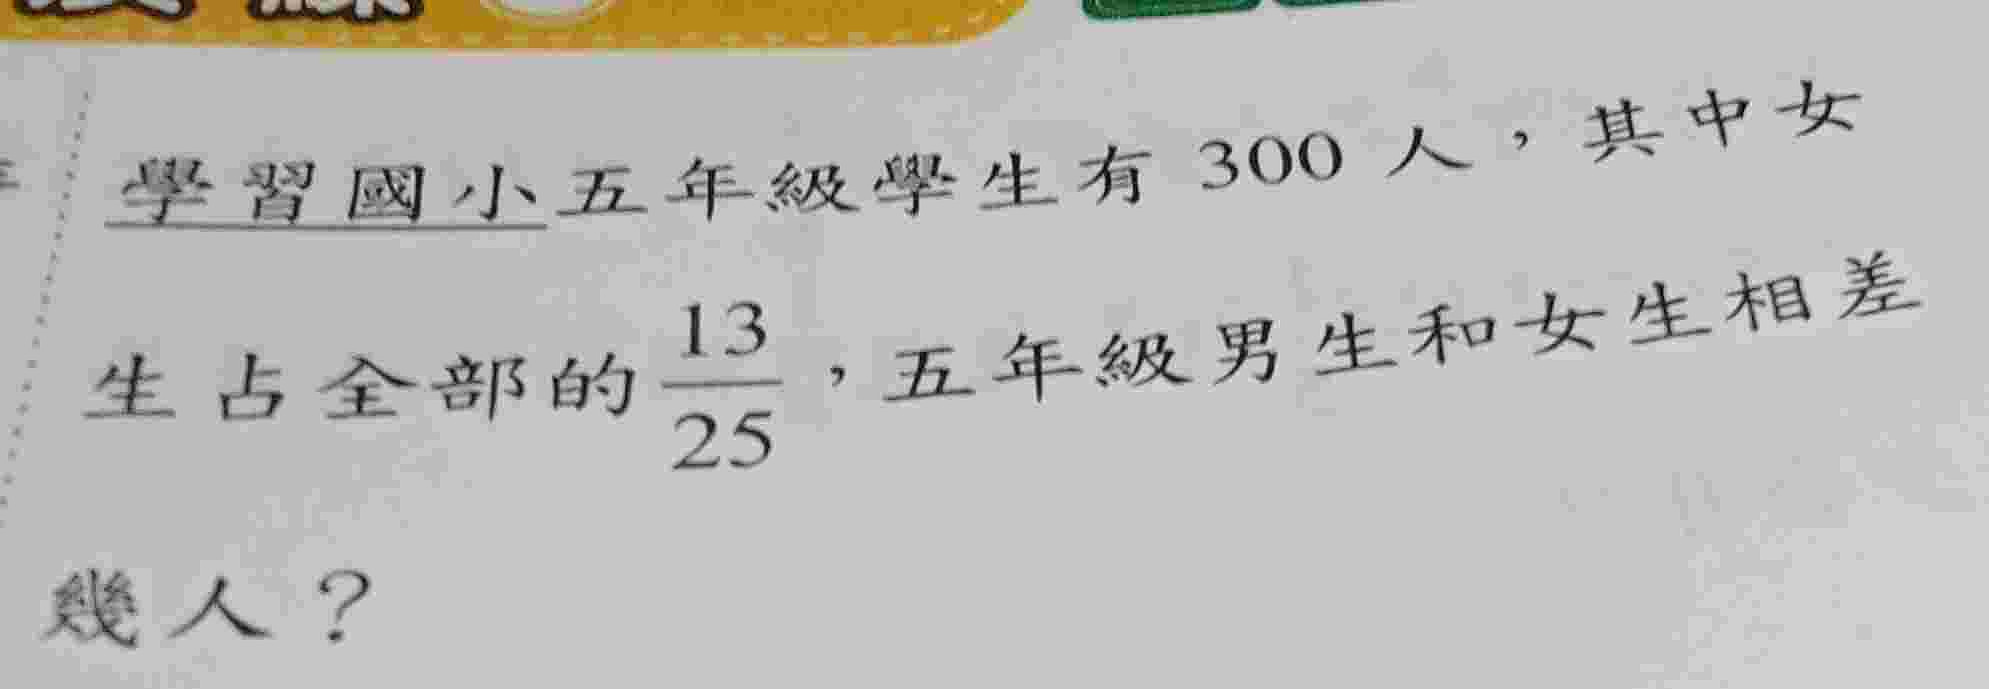 學習國小五年級學生有 300 人，其中女
生占全部的 13/25 ，五年級男生和女生相差
幾人？